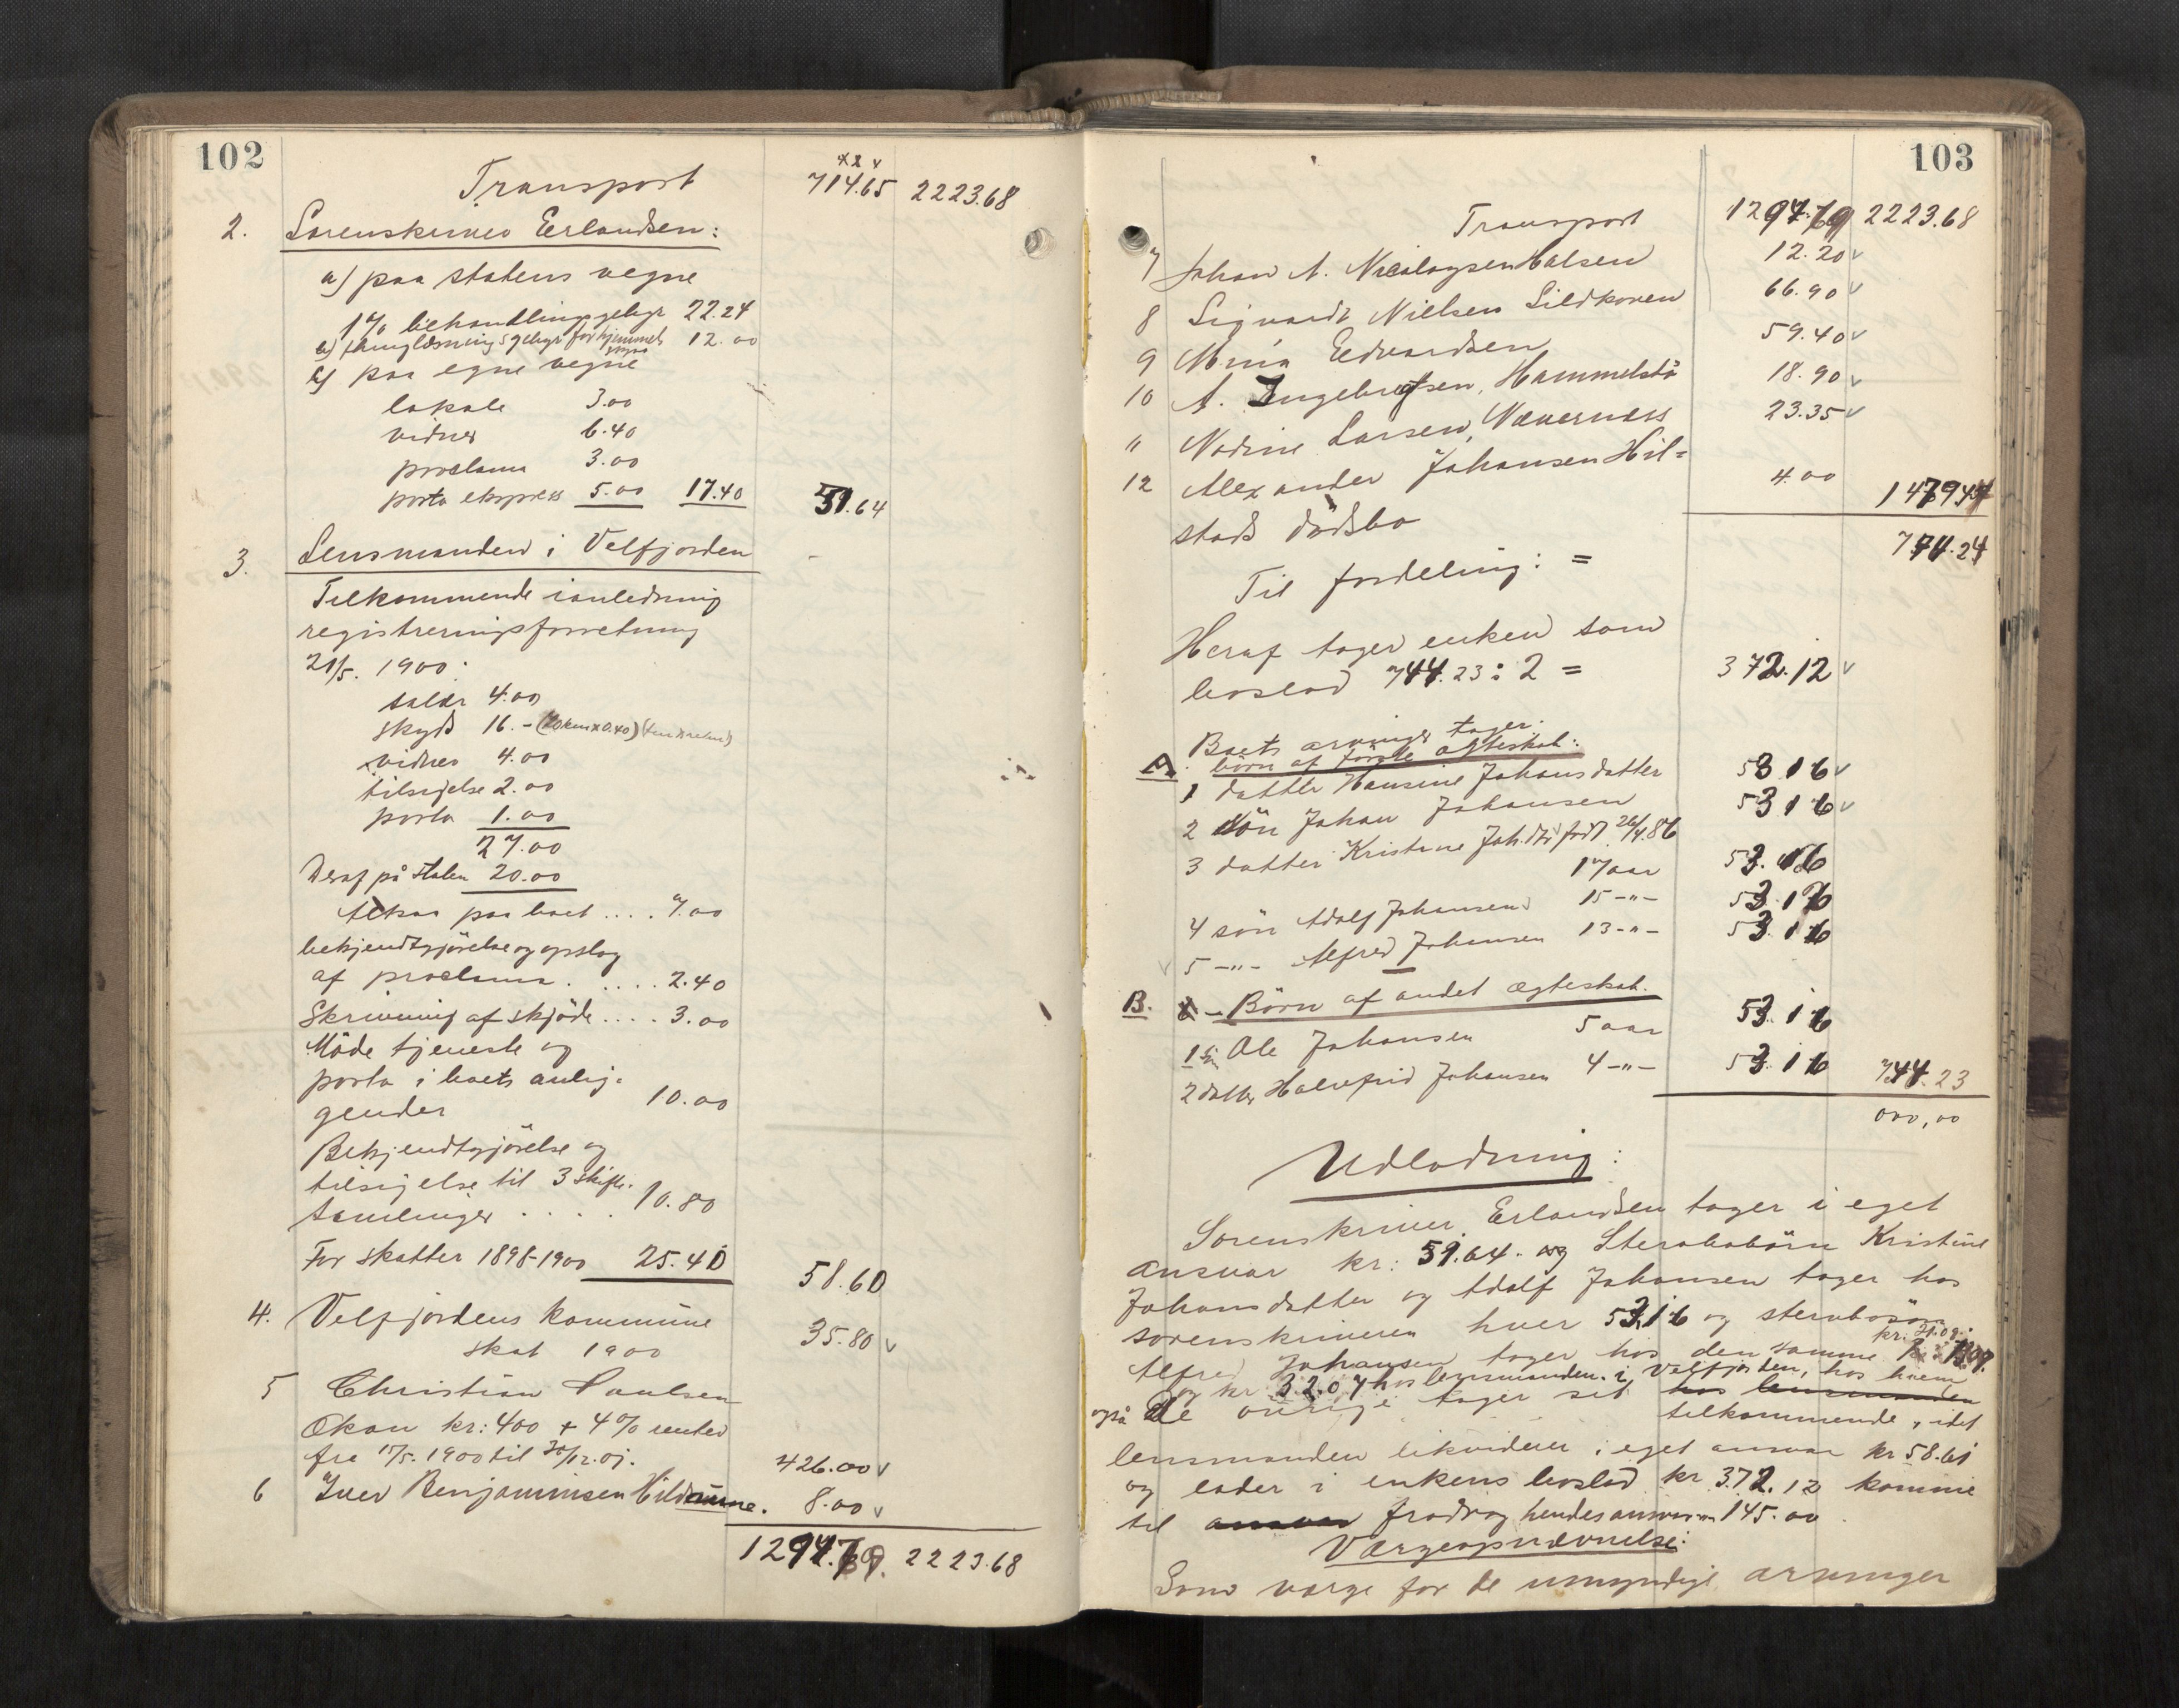 102
Transport 714.65 2223.68
2. Sorenskriver Erlandsen:
a) paa statens vegne
1% behandlingsgebyr 22.24
b) thinglæsningsgebyr for hjemmels 12.00
paa egne vegne
lokale 3.00
vidner 6.40
proclama 3.00
porto ekspress 5.00 17.40 51.64
3. Lensmanden i Velfjorden
Tilkommende i anledning
registreringsforretning
21/5. 1900:
salær 4.00
skyds 16.- (20 km x 0.40)
vidner 4.00
tilsigelse 2.00
porto 1.00
27.00
Deraf på staten 20.00
Altsaa paa boet .... 7.00
bekjendtgjörelse og opslag
af proclama ..... 2.40
Skrivning af skjöde .... 3.00
Möde tjeneste og
porto i boets anlig-
gender 10.00
Bekjendtgjörelse og
tilsigelse til 3 skifte-
samlinger .... 10.80
For skatter 1898-1900 25.40 58.60
4. Velfjordens kommune
skat 1900 35.80 v
5 Christian Paulsen
Økan kr: 400 + 4% renter
fra 15/5. 1900 til 30/12. 01. 426.00 v
6 Iver Benjaminsen 8.00 v
2223.68
103
Transport 2223.68
7 Johan A. Nicolaysen Halsen 12.20 v
8 Sigvardt Nielsen Sildkoven 66.90 v
9 Mina Edvardsen 59.40 v
10 A. Ingebrigtsen, Hammelstö 18.90 v
11 Nodine Larsen, Nævernæss 23.35 v
12 Alexander Johansen Hil=
stads dödsbo 4.00
744.24
Til fordeling: =
Heraf tager enken som
boslod 744.23 : 2 = 372.12 v
Boets arvinger tager:
A. börn af förste ægteskab:
1 datter Hansine Johansdatter 53.16 v
2 sön Johan Johansen 53.16 v
3 datter Kristine Joh.dtr född 26/4.86
17 aar 53.16
4 sön Adolf Johansen 15 -"- 53.16
5 -"- Alfred Johansen 13 -"- 53.16
B. Börn af andet ægteskab.
1 sön Ole Johansen 5 aar 53.16
2 datter Halvfrid Johansen 4 -"- 53.16 744.23
000,00
Udlodning:
Sorenskriver Erlandsen tager i eget
ansvar kr: 51.64. og Sterbobörn Kristine
Johansdatter og Adolf Johansen tager hos
sorenskriveren hver 53.16 og sterbosön
kr: 21.09.
Alfred Johansen tager hos den samme
og kr 32.07 hos lensmanden i Velfjorden, hos hvem
også de övrige tager sit hos lensmanden
tilkommende, idet
lensmanden likviderer i eget ansvar kr 58.60
og lader i enkens boslod kr 372.12 komme
til ansvar fradrag hendes ansvar 145.00
Værgeopnævnelse:
Som værge for de umyndige arvinger